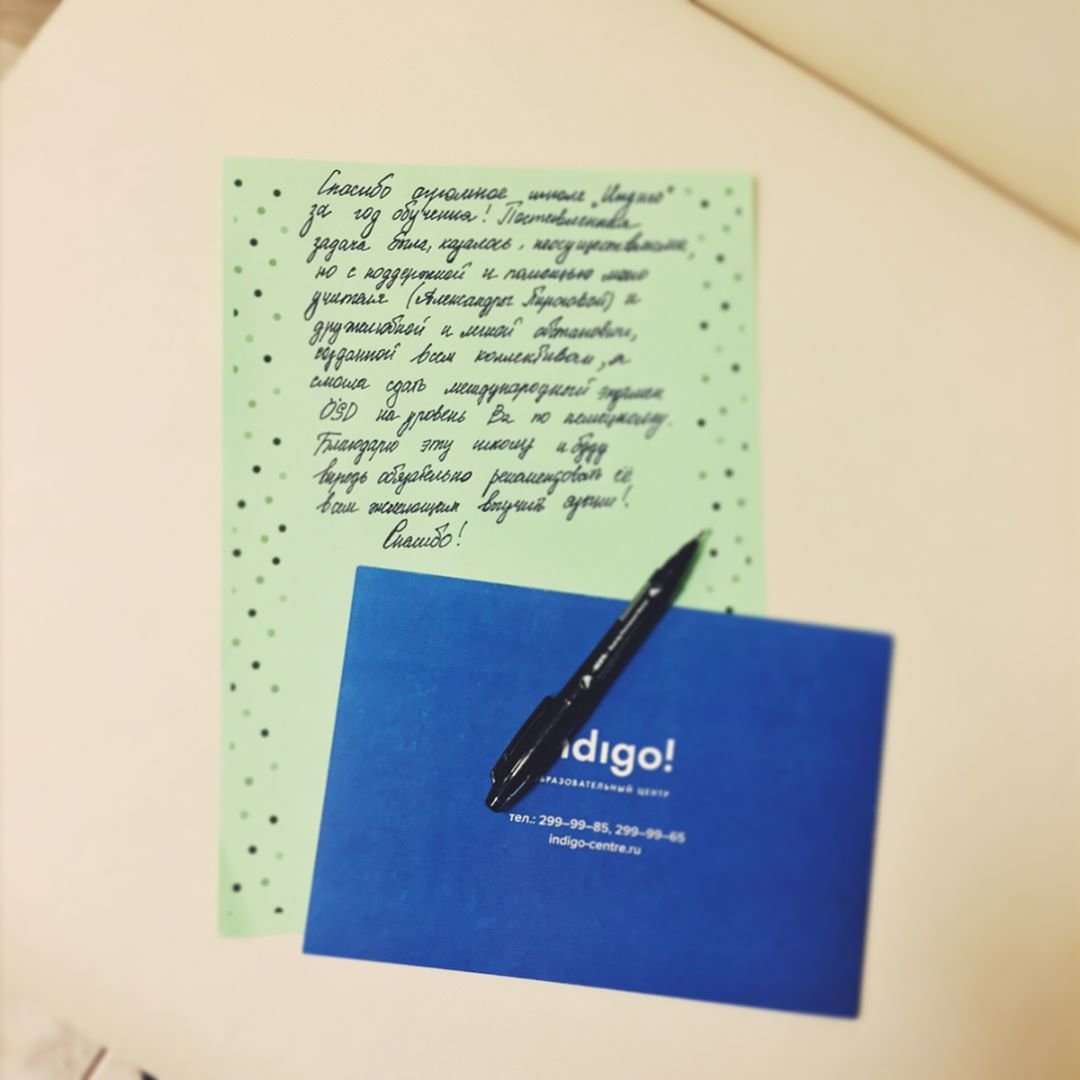 Спасибо огромное школе „Индиго“
за год обучения! Поставленная
задача была, казалось, неосуществимима,
но с поддержкой и помощью моего
учителя (Александры Пироговой) и
дружелюбной и лёгкой обстановки,
созданной всем коллективом, я
смогла сдать международный экзамен
ÖSD на уровень B2 по немецкому.
Благодарю эту школу и буду
впредь обязательно рекомендовать её
всем желающим выучить языки!
Спасибо!
ndigo!
БРАЗОВАТЕЛЬНЫЙ ЦЕНТР
тел.: 299–99–85, 299–99–65
indigo-centre.ru